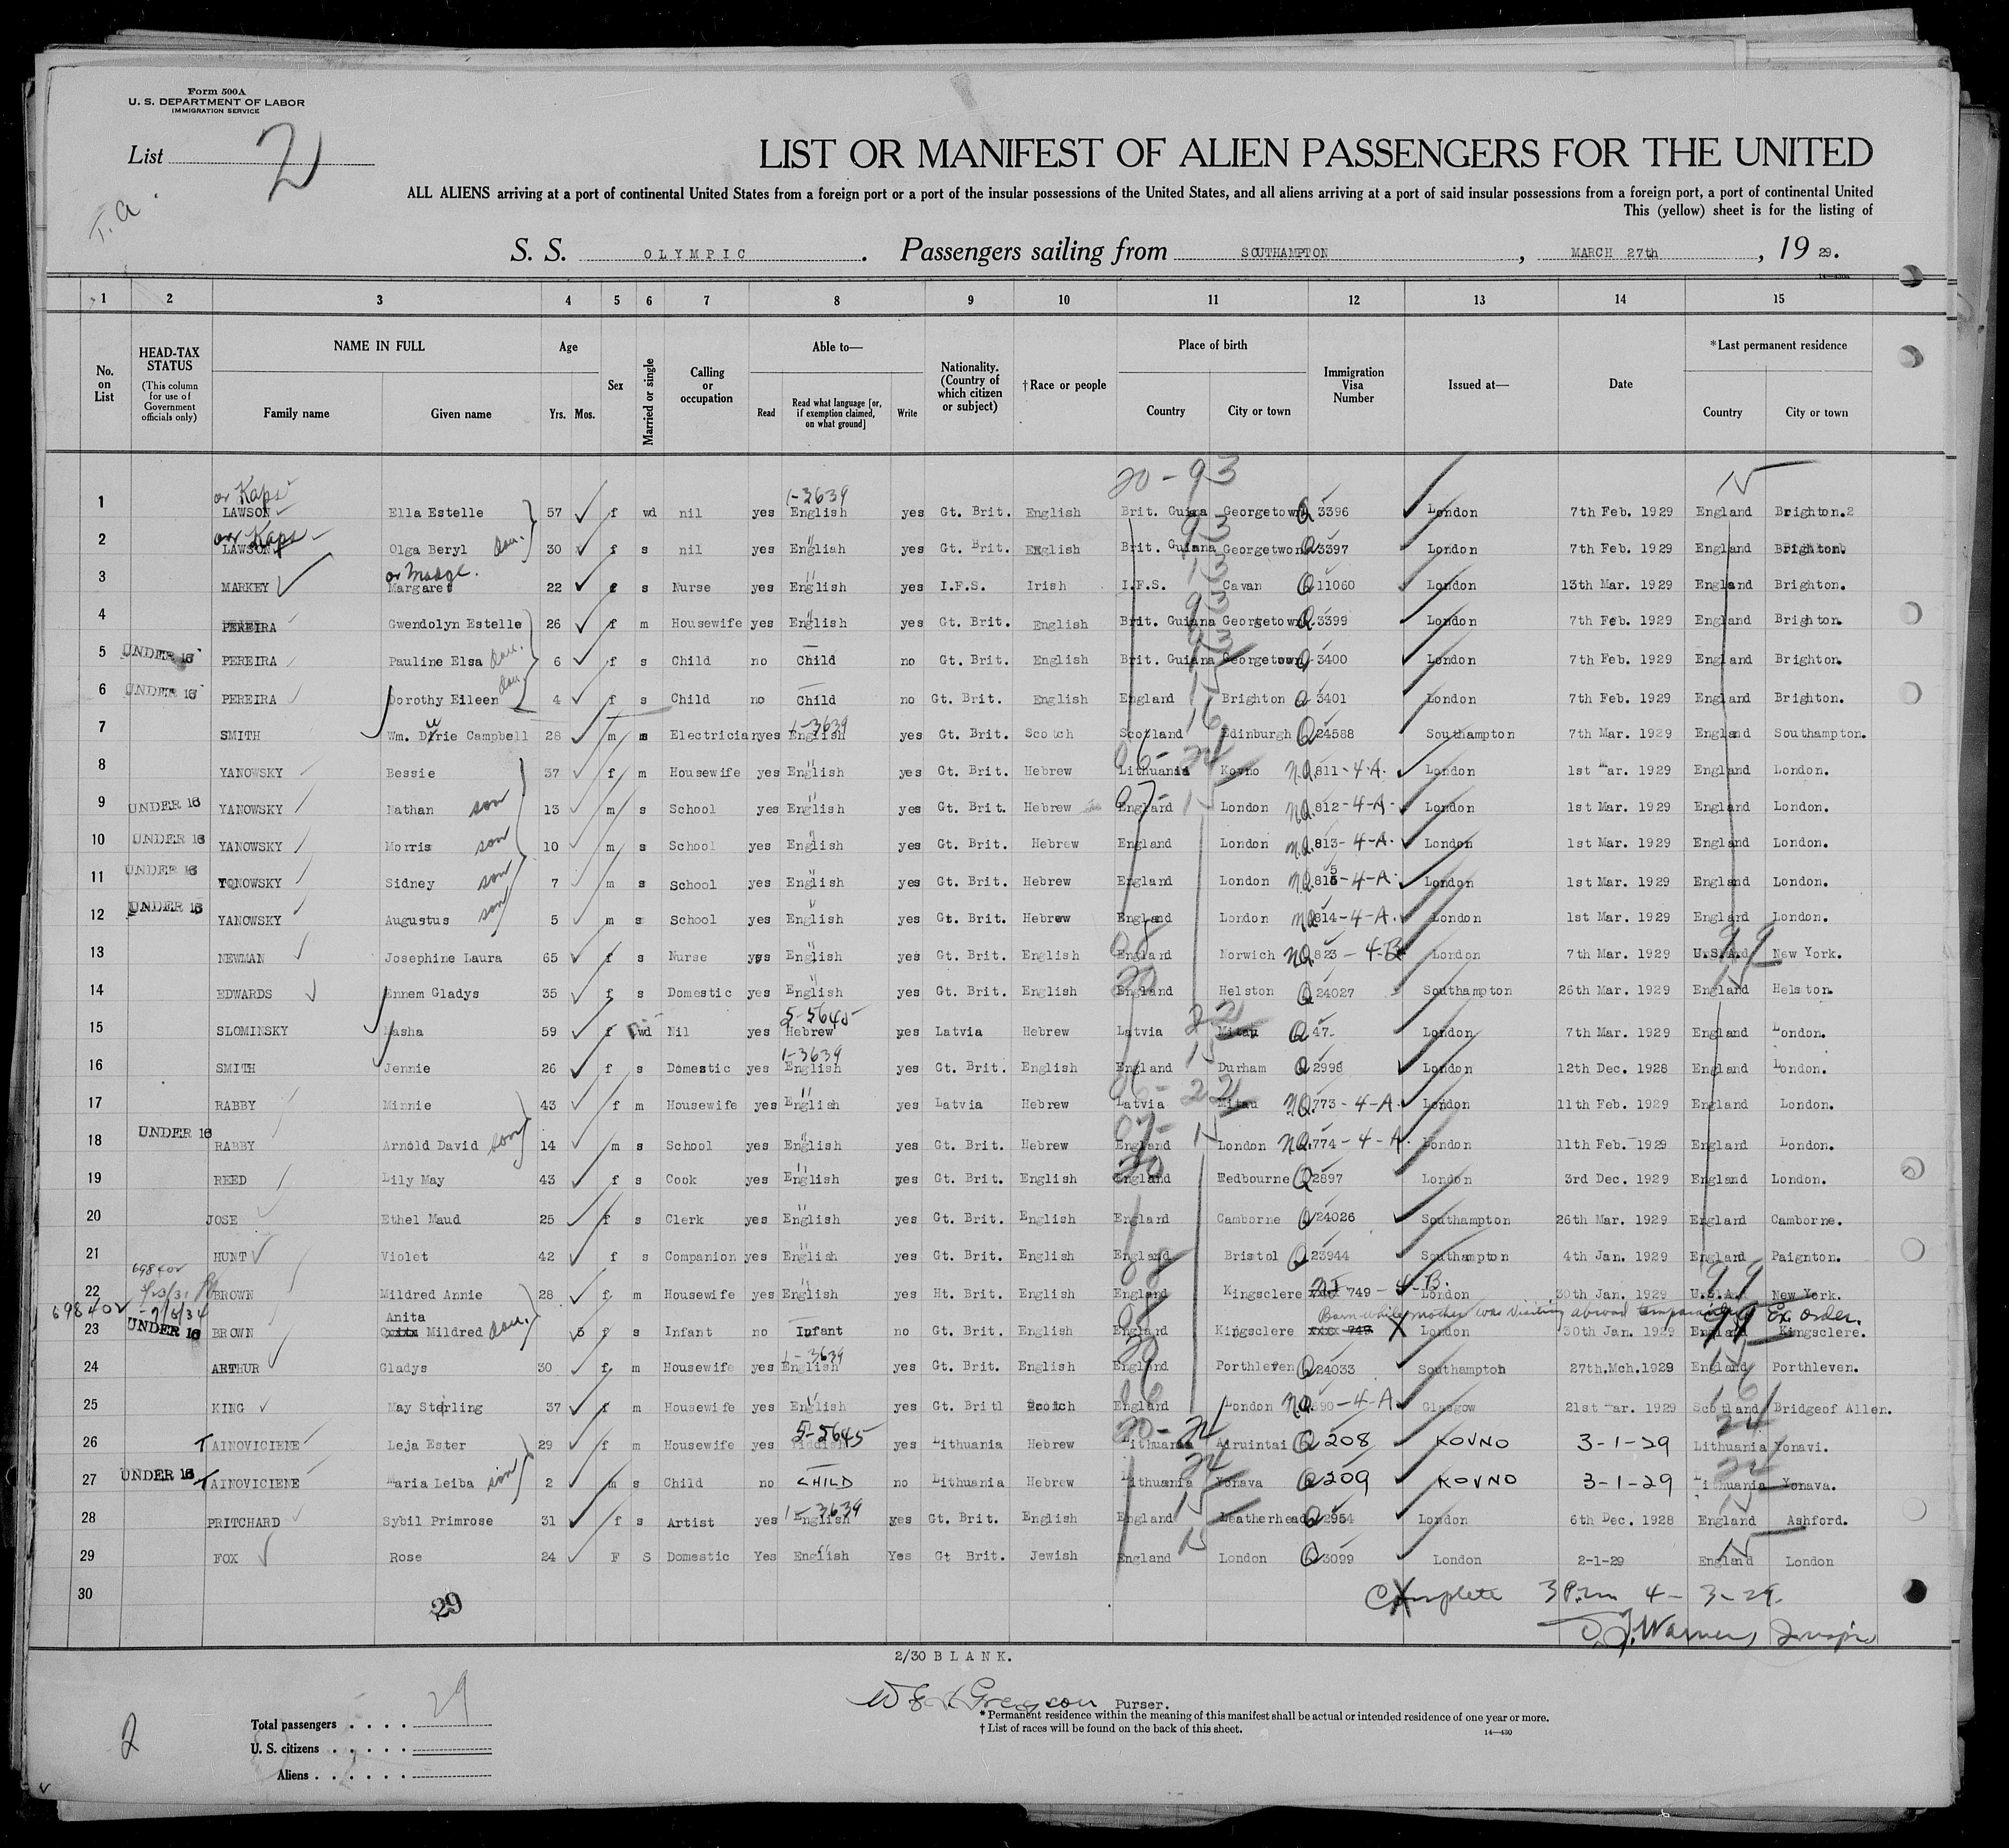 Form 500A
U. S. DEPARTMENT OF LABOR
IMMIGRATION SERVICE
List 2
T. a.
LIST OR MANIFEST OF ALIEN PASSENGERS FOR THE UNITED
ALL ALIENS arriving at a port of continental United States from a foreign port or a port of the insular possessions of the United States, and all aliens arriving at a port of said insular possessions from a foreign port, a port of continental United
This (yellow) sheet is for the listing of
S. S. OLYMPIC. Passengers sailing from SOUTHAMPTON, MARCH 27th, 19 29.
1 2 3 4 5 6 7 8 9 10 11 12 13 14 15
No. on List
HEAD-TAX STATUS (This column for use of Government officials only)
NAME IN FULL Family name Given name
Age Yrs. Mos.
Sex
Married or single
Calling or occupation
Able to— Read Read what language [or, if exemption claimed, on what ground] Write
Nationality. (Country of which citizen or subject)
†Race or people
Place of birth Country City or town
Immigration Visa Number
Issued at—
Date
*Last permanent residence Country City or town
20-93 15
or Kaps 1-3639
1 LAWSON Ella Estelle 57 f wd nil yes English yes Gt. Brit. English Brit. Guiana Georgetown Q 3396 London 7th Feb. 1929 England Brighton.2
or Kaps
2 LAWSON Olga Beryl dau. 30 f s nil yes English yes Gt. Brit. English Brit. Guiana Georgetwon Q 3397 London 7th Feb. 1929 England Brighton.
or Madge.
3 MARKEY Margaret 22 f s Nurse yes English yes I.F.S. Irish I.F.S. Cavan Q 11060 London 13th Mar. 1929 England Brighton.
4 PEREIRA Gwendolyn Estelle 26 f m Housewife yes English yes Gt. Brit. English Brit. Guiana Georgetown Q 3399 London 7th Feb. 1929 England Brighton.
5 UNDER 16 PEREIRA Pauline Elsa dau. 6 f s Child no Child no Gt. Brit. English Brit. Guiana Georgetown Q 3400 London 7th Feb. 1929 England Brighton.
6 UNDER 16 PEREIRA Dorothy Eileen dau 4 f s Child no Child no Gt. Brit. English England Brighton Q 3401 London 7th Feb. 1929 England Brighton.
1-3639
7 SMITH Wm. Dyrie Campbell 28 m s Electrician yes English yes Gt. Brit. Scotch Scotland Edinburgh Q 24588 Southampton 7th Mar. 1929 England Southampton.
8 YANOWSKY Bessie 37 f m Housewife yes English yes Gt. Brit. Hebrew Lithuania Kovno N.Q. 811-4-A. London 1st Mar. 1929 England London.
9 UNDER 16 YANOWSKY Nathan son 13 m s School yes English yes Gt. Brit. Hebrew England London N.Q. 812-4-A. London 1st Mar. 1929 England London.
10 UNDER 16 YANOWSKY Morris son 10 m s School yes English yes Gt. Brit. Hebrew England London N.Q. 813-4-A. London 1st Mar. 1929 England London.
11 UNDER 16 YONOWSKY Sidney son 7 m s School yes English yes Gt. Brit. Hebrew England London N.Q. 815-4-A. London 1st Mar. 1929 England London.
12 UNDER 16 YANOWSKY Augustus son 5 m s School yes English yes Gt. Brit. Hebrew England London N.Q. 814-4-A. London 1st Mar. 1929 England London.
13 NEWMAN Josephine Laura 65 f s Nurse yes English yes Gt. Brit. English England Norwich N.Q. 823-4-B London 7th Mar. 1929 U.S.A. New York.
14 EDWARDS Ennem Gladys 35 f s Domestic yes English yes Gt. Brit. English England Helston Q 24027 Southampton 26th Mar. 1929 England Helston.
5-5645
15 SLOMINSKY Masha 59 f wd Nil yes Hebrew yes Latvia Hebrew Latvia Mitau Q 47. London 7th Mar. 1929 England London.
1-3639
16 SMITH Jennie 26 f s Domestic yes English yes Gt. Brit. English England Durham Q 2998 London 12th Dec. 1928 England London.
17 RABBY Minnie 43 f m Housewife yes English yes Latvia Hebrew Latvia Mitau N.Q. 773-4-A. London 11th Feb. 1929 England London.
18 UNDER 16 RABBY Arnold David son 14 m s School yes English yes Gt. Brit. Hebrew England London N.Q. 774-4-A. London 11th Feb. 1929 England London.
19 REED Lily May 43 f s Cook yes English yes Gt. Brit. English England Redbourne Q 2897 London 3rd Dec. 1929 England London.
20 JOSE Ethel Maud 25 f s Clerk yes English yes Gt. Brit. English England Camborne Q 24026 Southampton 26th Mar. 1929 England Camborne.
21 HUNT Violet 42 f s Companion yes English yes Gt. Brit. English England Bristol Q 23944 Southampton 4th Jan. 1929 England Paignton.
698402
22 BROWN Mildred Annie 28 f m Housewife yes English yes Ht. Brit. English England Kingsclere 749-4-B. London 30th Jan. 1929 U.S.A. New York.
698402 -7/6/34 Anita Born while mother was visiting abroad temporarily Ex. Order.
23 UNDER 16 BROWN Mildred dau. 5 f s Infant no Infant no Gt. Brit. English England Kingsclere xxxx 749 X London 30th Jan. 1929 England Kingsclere.
1-3639
24 ARTHUR Gladys 30 f m Housewife yes English yes Gt. Brit. English England Porthleven Q 24033 Southampton 27th.Mch.1929 England Porthleven.
25 KING May Sterling 37 f m Housewife yes English yes Gt. Britl Scotch England London N.Q. 690-4-A Glasgow 21st Mar. 1929 Scotland Bridgeof Allen.
5-5645
26 TAINOVICIENE Leja Ester 29 f m Housewife yes Yiddish yes Lithuania Hebrew Lithuania Airuintai Q 208 KOVNO 3-1-29 Lithuania Yonavi.
27 UNDER 16 TAINOVICIENE Maria Leiba son 2 m s Child no CHILD no Lithuania Hebrew Lithuania Yonava Q 209 KOVNO 3-1-29 Lithuania Yonava.
1-3639
28 PRITCHARD Sybil Primrose 31 f s Artist yes English yes Gt. Brit. English England Leatherhead Q 2954 London 6th Dec. 1928 England Ashford.
29 FOX Rose 24 F S Domestic Yes English Yes Gt Brit. Jewish England London Q 3099 London 2-1-29 England London
30 29 Complete 3 P.m 4-3-29.
Warner
2/30 BLANK.
Gregson Purser.
* Permanent residence within the meaning of this manifest shall be actual or intended residence of one year or more.
† List of races will be found on the back of this sheet.
14—430
2
Total passengers . . . . 29
U. S. citizens . . . . .
Aliens . . . . . .